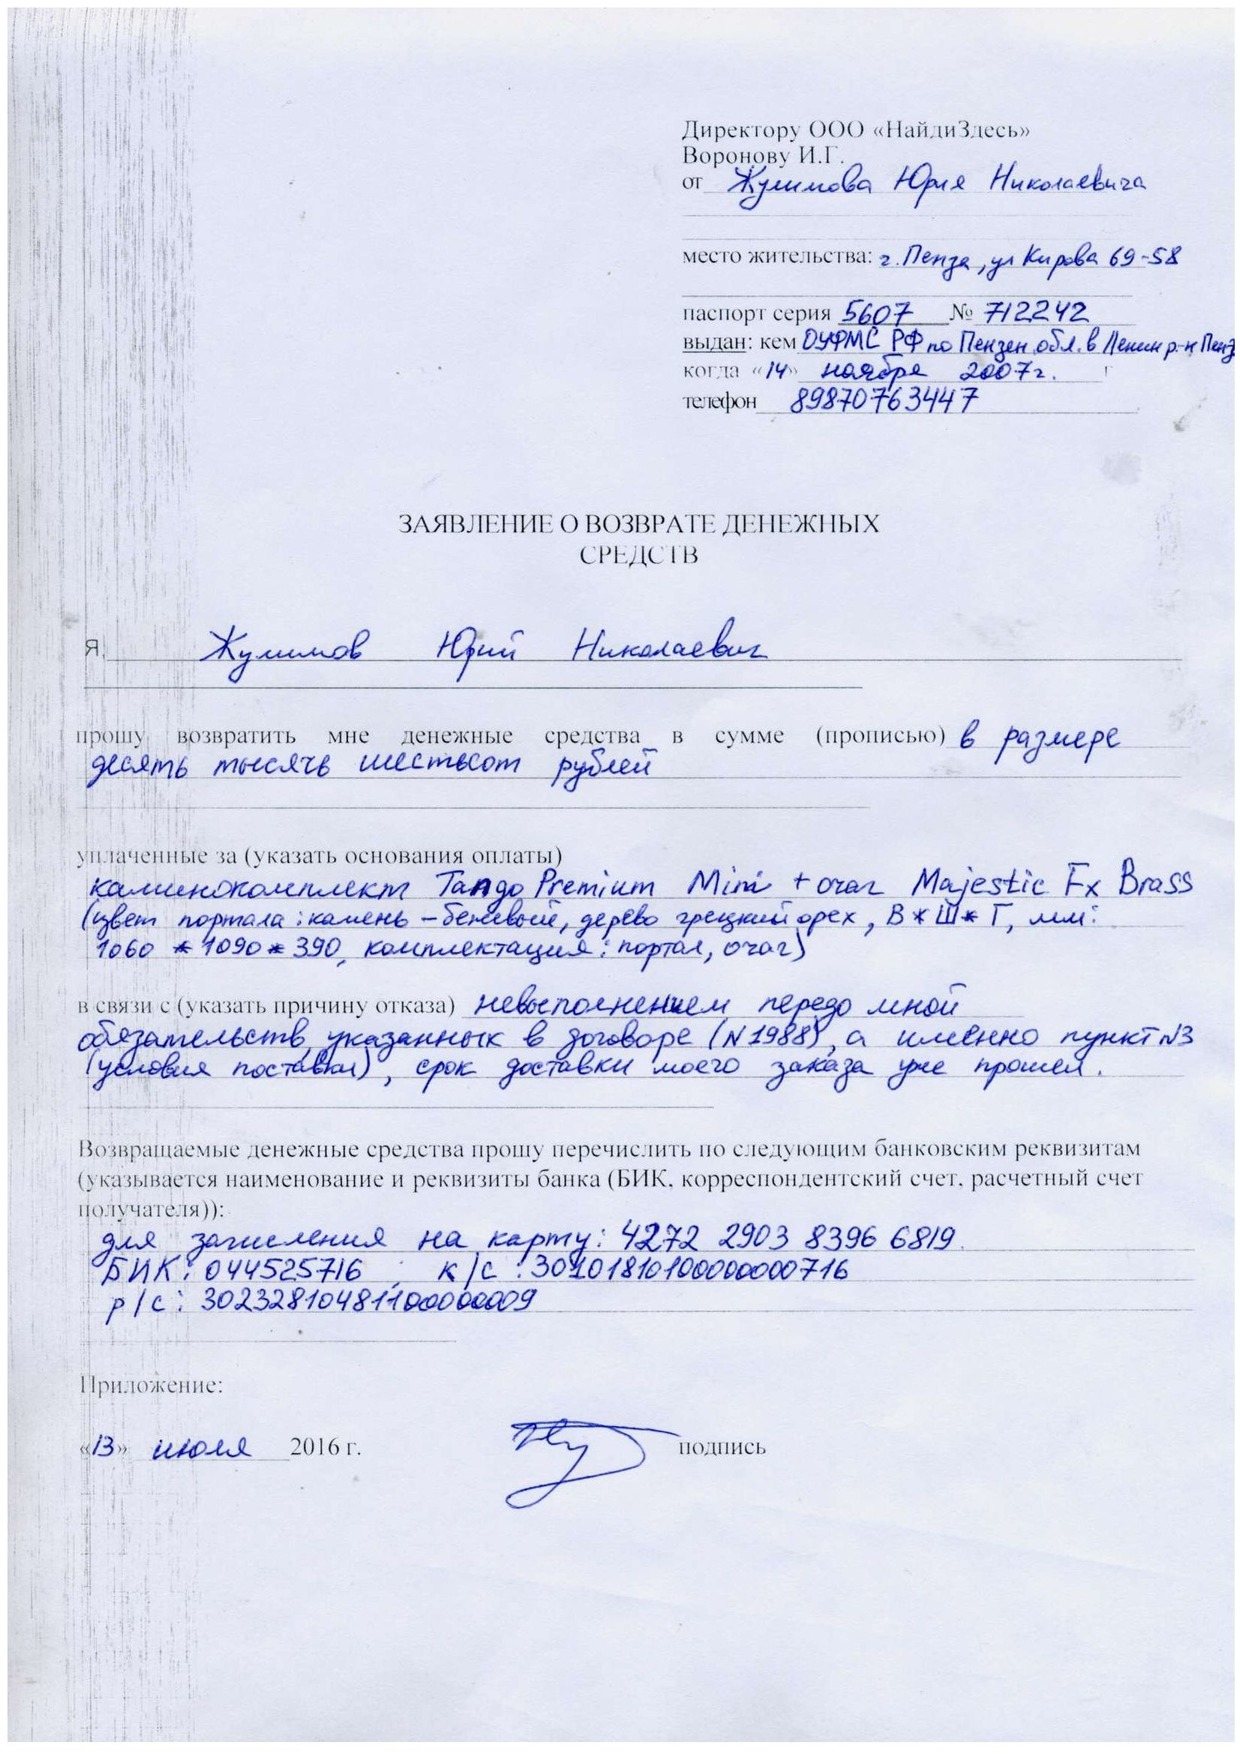 Директору ООО «НайдиЗдесь»
Воронову И.Г.
от Жулимова Юрия Николаевича
место жительства: г. Пенза, ул Кирова 69-58
паспорт серия 5607 № 712242
выдан: кем ОУФМС РФ по Пензен обл. в Ленин р-н Пенз
когда «14» ноября 2007г. г
телефон 89870763447
ЗАЯВЛЕНИЕ О ВОЗВРАТЕ ДЕНЕЖНЫХ
СРЕДСТВ
Я, Жулимов Юрий Николаевич
прошу возвратить мне денежные средства в сумме (прописью) в размере
десять тысячь шестьсот рублей
уплаченные за (указать основания оплаты)
каминокомплект Tango Premium Mini + очаг Majestic Fx Brass
(цвет портала: камень - бежевый, дерево грецкий орех, В*Ш*Г, мм:
1060 * 1090 * 390, комплектация: портал, очаг)
в связи с (указать причину отказа) невыполнением передо мной
обязательств, указанных в договоре (N1988), а именно пункт №3
(условия поставки), срок доставки моего заказа уже прошел.
Возвращаемые денежные средства прошу перечислить по следующим банковским реквизитам
(указывается наименование и реквизиты банка (БИК, корреспондентский счет, расчетный счет
получателя)):
для зачисления на карту: 4272 2903 8396 6819.
БИК: 044525716 ; к/с : 30101810100000000716
р/с: 30232810481100000009
Приложение:
«13» июля 2016 г. подпись